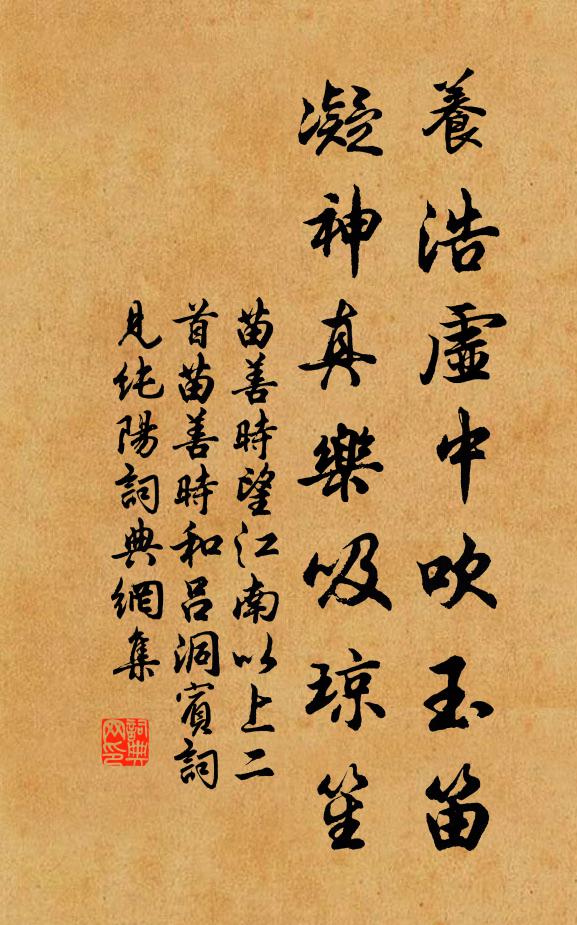 養浩虛中吹玉笛
凝神真樂吸琼笙
苗善時望江南以上二
首苗善時和吕洞賓詞
見纯陽詞典網集
詞典
网印